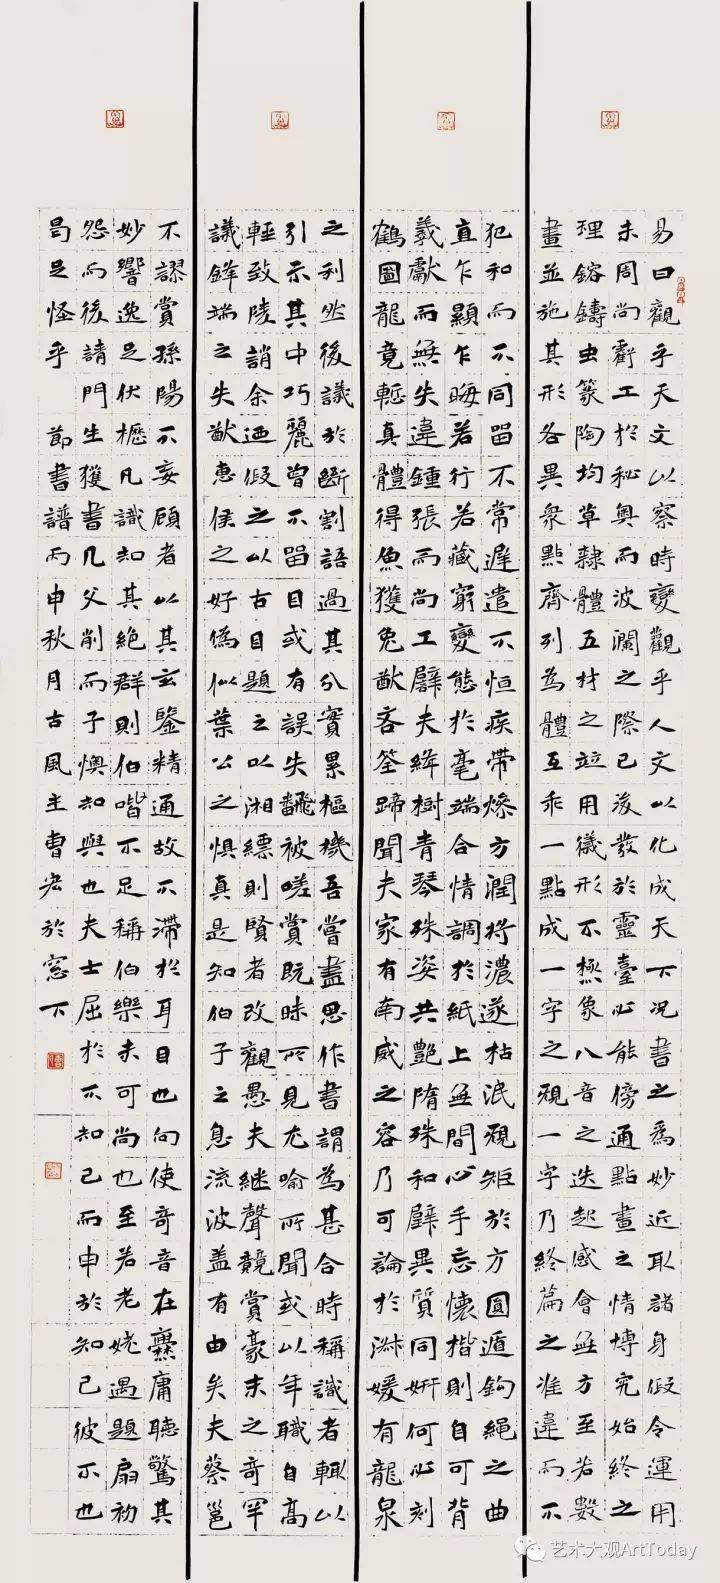 易曰觀乎天文以察時變觀乎人文以化成天下况書之為妙近取諸身假令運用
未周尚虧工於秘奥而波瀾之際已濬發於靈臺必能傍通點畫之情博究始終之
理鎔鑄虫篆陶均草隸體五材之並用儀形不極象八音之迭起感會無方至若數
畫並施其形各異衆點齊列為體互乖一點成一字之規一字乃終篇之准違而不
犯和而不同留不常遲遣不恒疾帶燥方潤將濃遂枯泯規矩於方圓遁鉤繩之曲
直乍顯乍晦若行若藏窮變態於毫端合情調於紙上無間心手忘懷楷則自可背
羲獻而無失違鍾張而尚工譬夫絳樹青琴殊姿共艷隋珠和璧異質同妍何必刻
鶴圖龍竟慙真體得魚獲兔猷吝筌蹄聞夫家有南威之容乃可論於淋媛有龍泉
之利然後議於斷割語過其分實累樞機吾嘗盡思作書謂為甚合時稱識者輒以
引示其中巧麗曾不留目或有誤失飜被嗟賞既昧所見尤喻所聞或以年職自高
輕致陵誚余迺假之以古目題之以湘縹則賢者改觀愚夫繼聲競賞豪末之奇罕
議鋒端之失猷惠侯之好偽似葉公之懼真是知伯子之息流波盖有由矣夫蔡邕
不謬賞孫陽不妄顧者以其玄鑒精通故不滯於耳目也向使奇音在爨庸聽驚其
妙響逸足伏櫪凡識知其絶群則伯喈不足稱伯樂未可尚也至若老姥遇題扇初
怨而後請門生獲書几父削而子懊知與也夫士屈於不知己而申於知己彼不也
曷足怪乎 節書譜丙申秋月古風主曹宏於窓下
艺术大观ArtToday